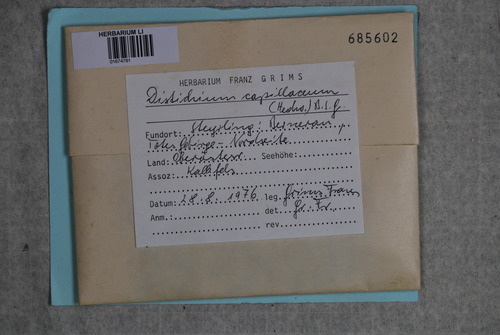 HERBARIUM LI
685602
HERBARIUM FRANZ GRIMS
Distichium capillaceum
(Hedw.) B.S.G.
Fundort: Steyrling: Bernerau,
Totes Gebirge - Nordseite
Land: Oberösterr. Seehöhe:
Assoz: Kalkfels
Datum: 28.8.1976 leg. Grims Franz
Anm.: det. Gr. Fr.
rev.